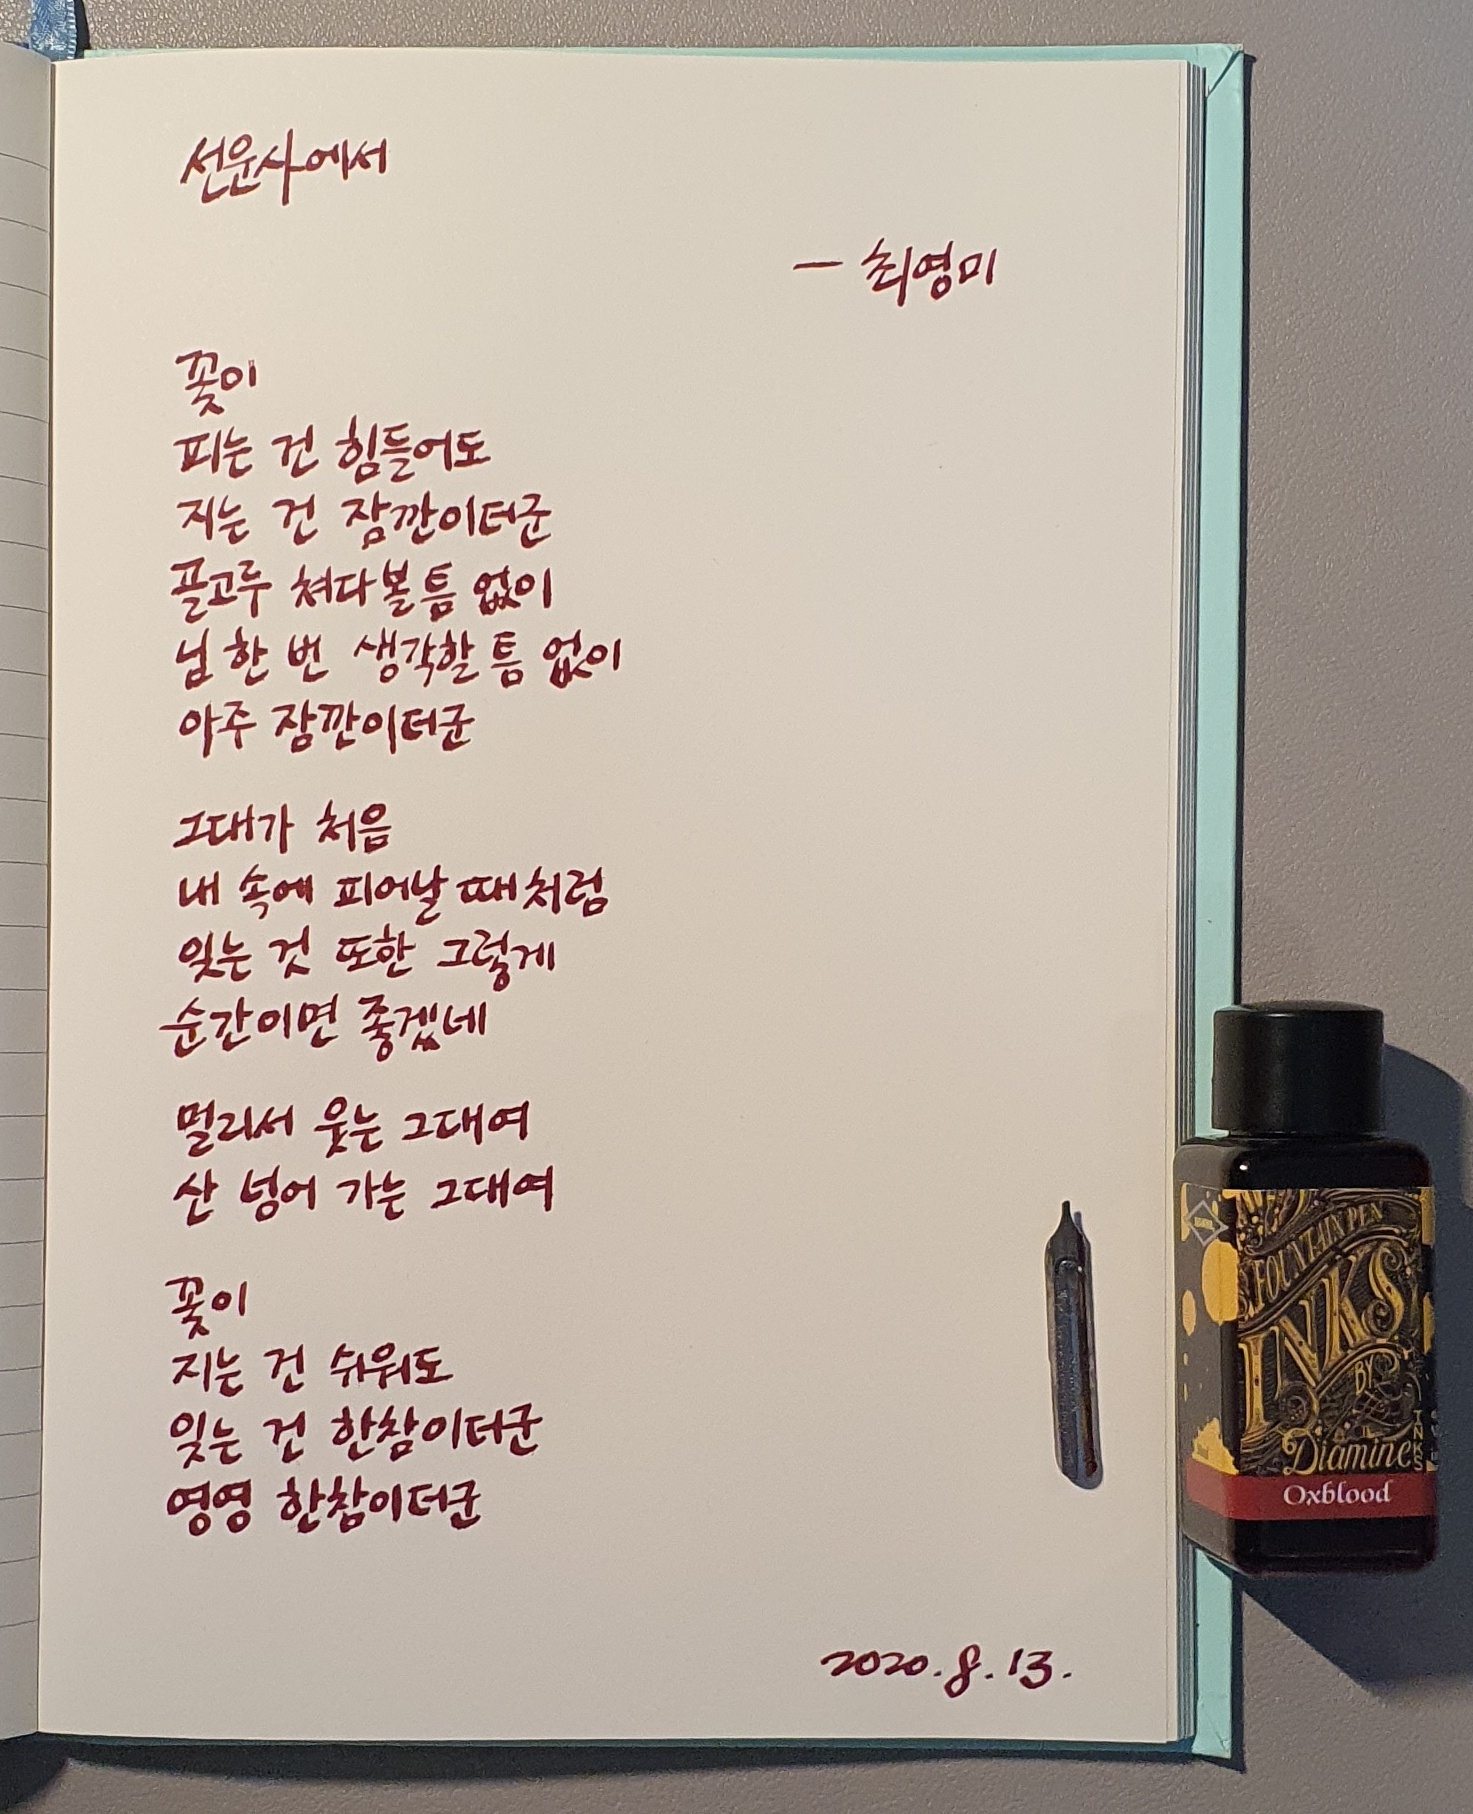 선운사에서
— 최영미
꽃이
피는 건 힘들어도
지는 건 잠깐이더군
골고루 쳐다볼 틈 없이
님 한 번 생각할 틈 없이
아주 잠깐이더군
그대가 처음
내 속에 피어날 때처럼
잊는 것 또한 그렇게
순간이면 좋겠네
멀리서 웃는 그대여
산 넘어 가는 그대여
꽃이
지는 건 쉬워도
잊는 건 한참이더군
영영 한참이더군
2020. 8. 13.
FOUNTAIN PEN
INKS
BY
Diamine
Oxblood